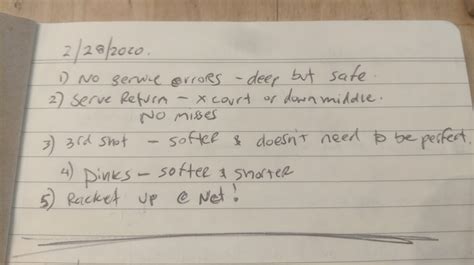 2/28/2020.
1) No service errors - deep but safe.
2) Serve Return - x court or down middle.
No mises
3) 3rd shot - softer & doesn't need to be perfect.
4) Dinks - softer & shorter
5) Racket up @ Net!